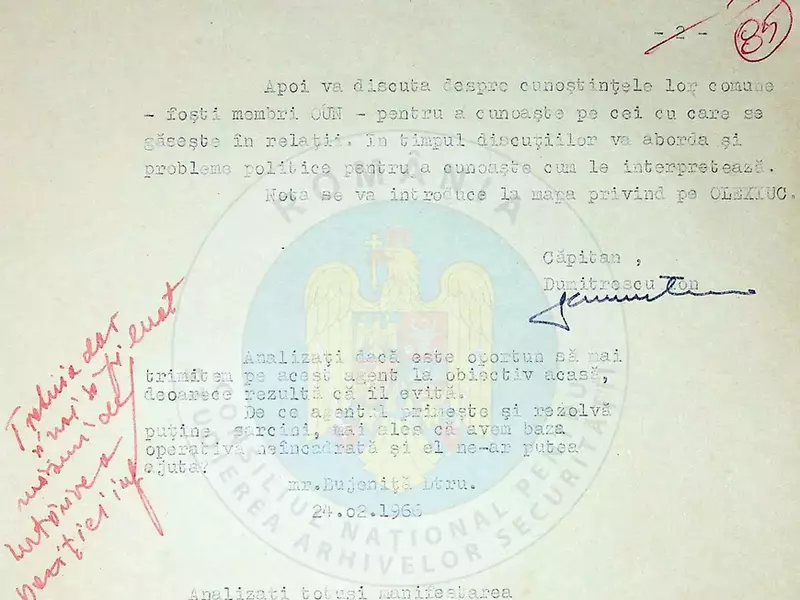 - 2 -
Apoi va discuta despre cunoștințele lor comune
- foști membri OUN - pentru a cunoaște pe cei cu care se
găsește în relații. În timpul discuțiilor va aborda și
probleme politice pentru a cunoaște cum le interpretează.
Nota se va introduce la mapa privind pe OLEXIUC.
Căpitan ,
Dumitrescu Ion
Analizați dacă este oportun să mai
trimitem pe acest agent la obiectiv acasă,
deoarece rezultă că îl evită.
De ce agentul primește și rezolvă
puține sarcini, mai ales că avem baza
operativă neîncadrată și el ne-ar putea
ajuta?
mr.Bujeniță Dtru.
24.02.1966
Analizați totuși manifestarea
ROMÂNIA
CONSILIUL NAȚIONAL PENTRU
STUDIEREA ARHIVELOR SECURITĂȚII